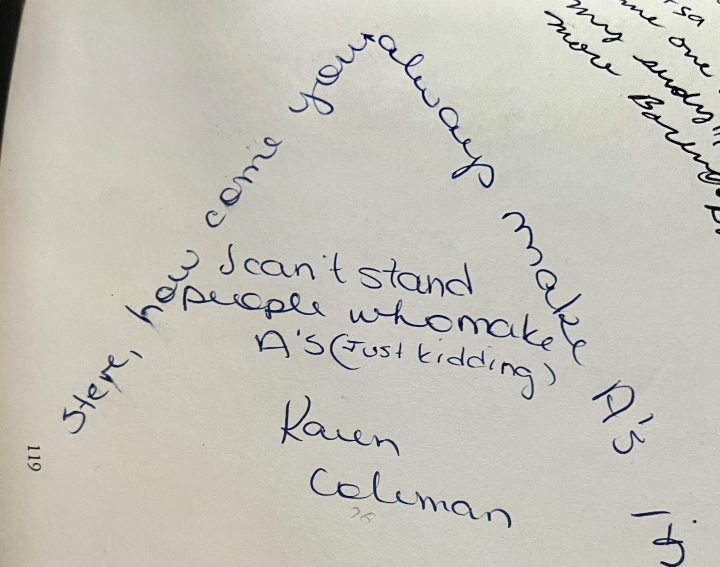 Steve, how come you always make A's
I can't stand
people who make
A's (Just kidding)
Karen
Coleman
119
me one
my study!!
more